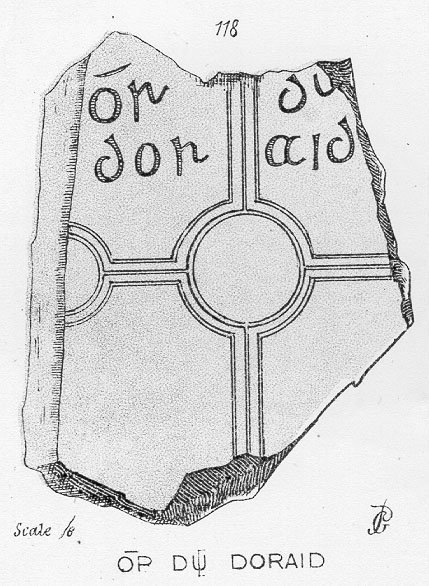 118
ōr du
dor aid
Scale
ŌP Dψ DORAID